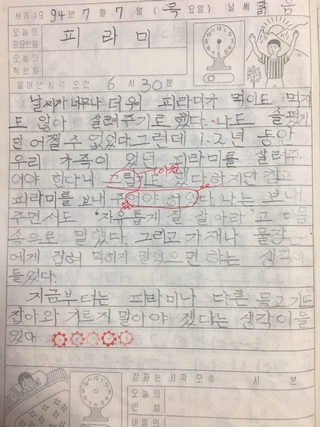 서기19 94년 7월 7일 (목요일) 날씨
오늘의 중요한일
피라미
오늘의 착한일
일어난시각 오전 6시 30분
날씨가 너무나 더워 피라미가 먹이도 먹지
도 않아 살려주기로 했다. 나도
만 어쩔 수 없었다. 그런데 1.2년 동안
우리 가족이 있던 피라미를 살려주
어야 한다니 했다 하지만 결국
피라미를 보내 주어야 하였다 나는 보내
주면서도 '자유롭게 잘 살아라' 고 마음
속으로 말했다. 그리고 가재나 물장
에게 잡혀 먹히지 말았으면 하는 생각이
들었다.
지금부터는 피라미나 다른 물고기도
잡아와 기르지 말아야 겠다는 생각이 들
었다.
잠자는시각 오후 시 분
오늘의 반성
내일의